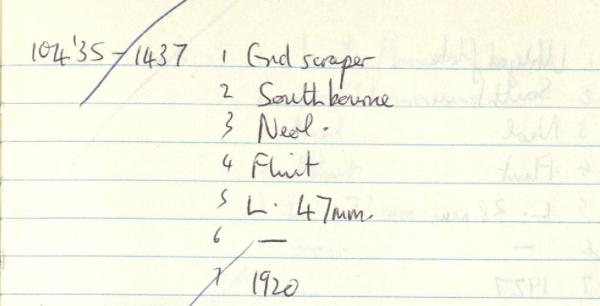 104'35-1437 1 End scraper
2 Southbourne
3 Neol.
4 Flint
5 L. 47mm.
6 —
7 1920